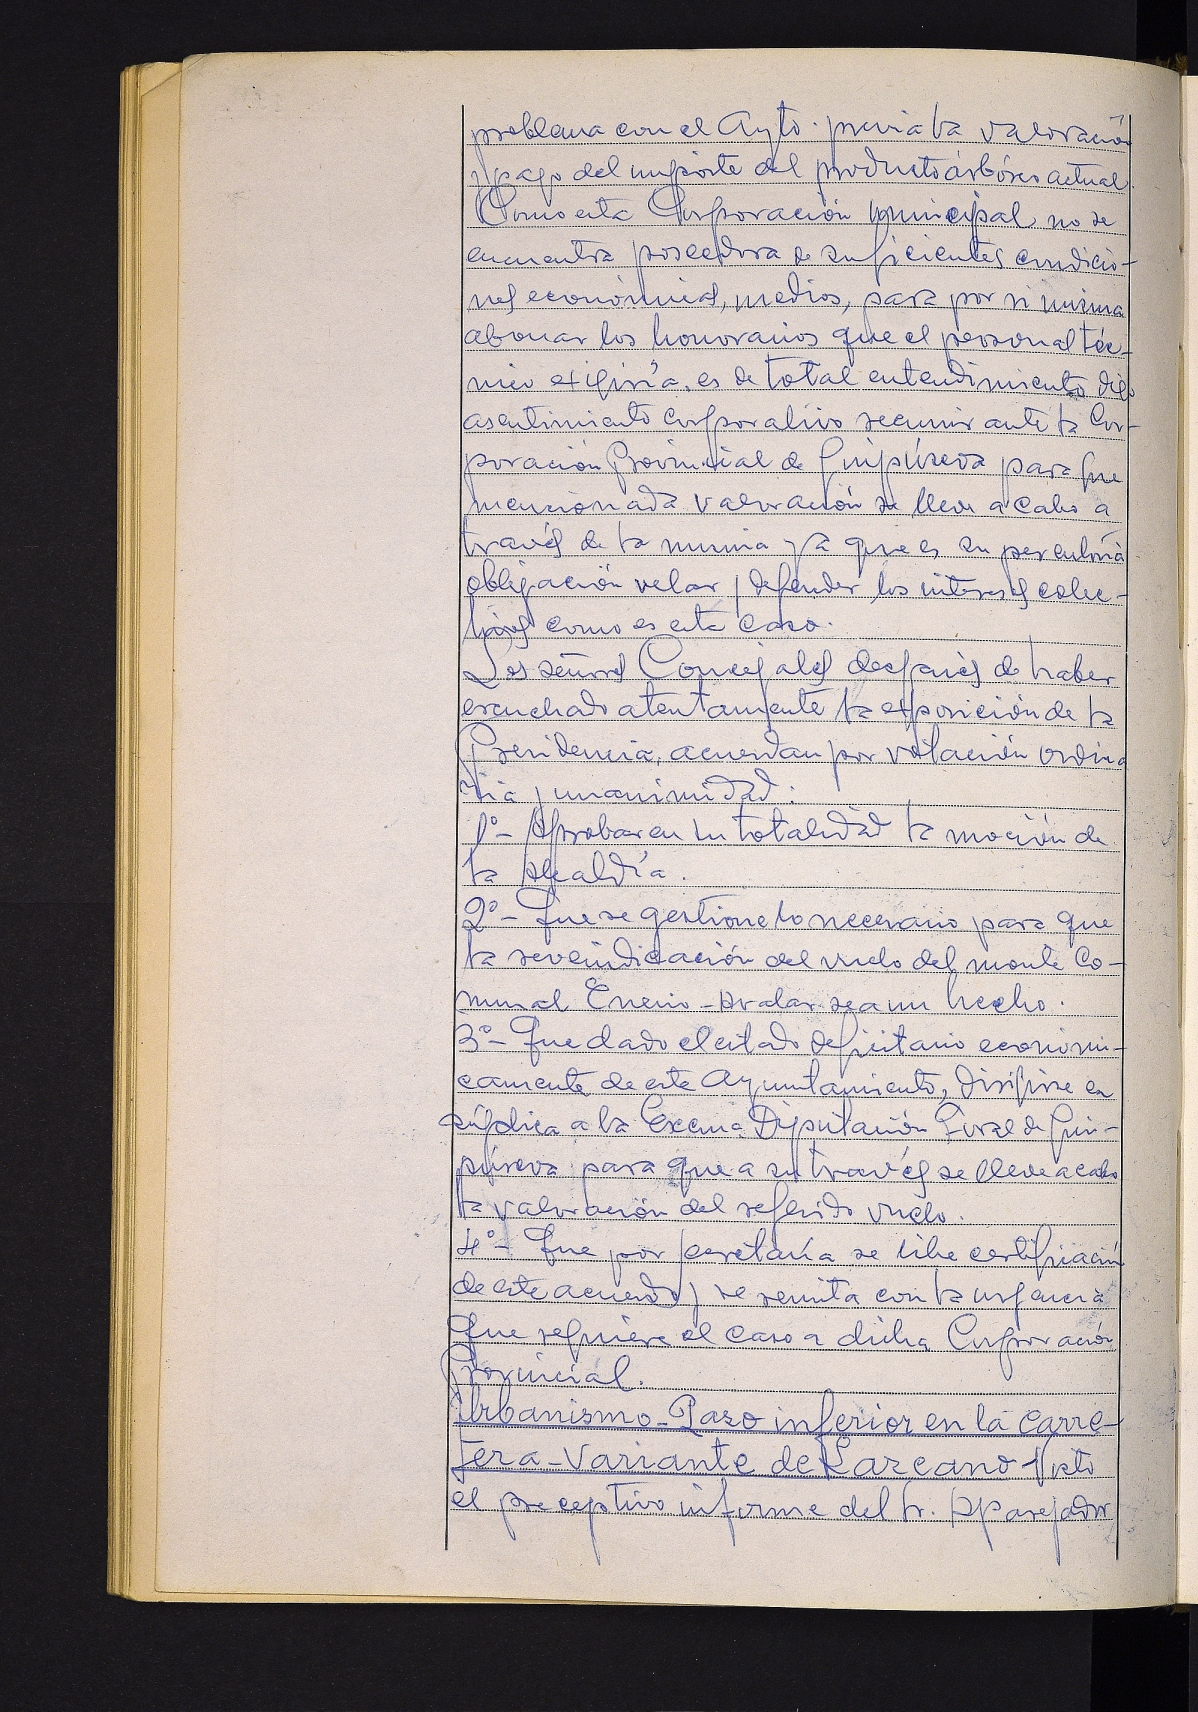 problema con el Ayto. previa la valoración
y pago del importe del producto arbóreo actual.
Como esta Corporación Municipal no se
encuentra poseedora de suficientes condicio-
nes económicas, medios, para por si misma
abonar los honorarios que el personal téc-
nico exigiría, es de total entendimiento y
asentimiento corporativo recurrir ante la Cor-
poración Provincial de Guipúzcoa para que
mencionada valoración se lleve a cabo a
través de la misma ya que es su perentoria
obligación velar y defender los intereses colec-
tivos como es este caso.
Los señores Concejales después de haber
escuchado atentamente la exposición de la
Presidencia, acuerdan por votación ordina
ria y unanimidad:
1º- Aprobar en su totalidad la moción de
la Alcaldía.
2º- Que se gestione lo necesario para que
la reveindicación del vuelo del monte Co-
munal Enerio-Aralar sea un hecho.
3º- Que dado el estado deficitario economi-
camente de este Ayuntamiento, dirigirse en
súplica a la Excma Diputación Foral de Gui-
púzcoa para que a su través se lleve a cabo
la valoración del referido vuelo.
4º- Que por Secretaría se libre certificación
de este acuerdo y se remita con la urgencia
que requiere el caso a dicha Corporación
Provincial.
Urbanismo-Paso inferior en la carre-
tera-Variante de Lazcano Visto
el preceptivo informe del Sr. Aparejador